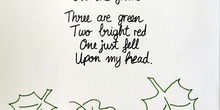 Three are green
Two bright red
One just fell
Upon my head.